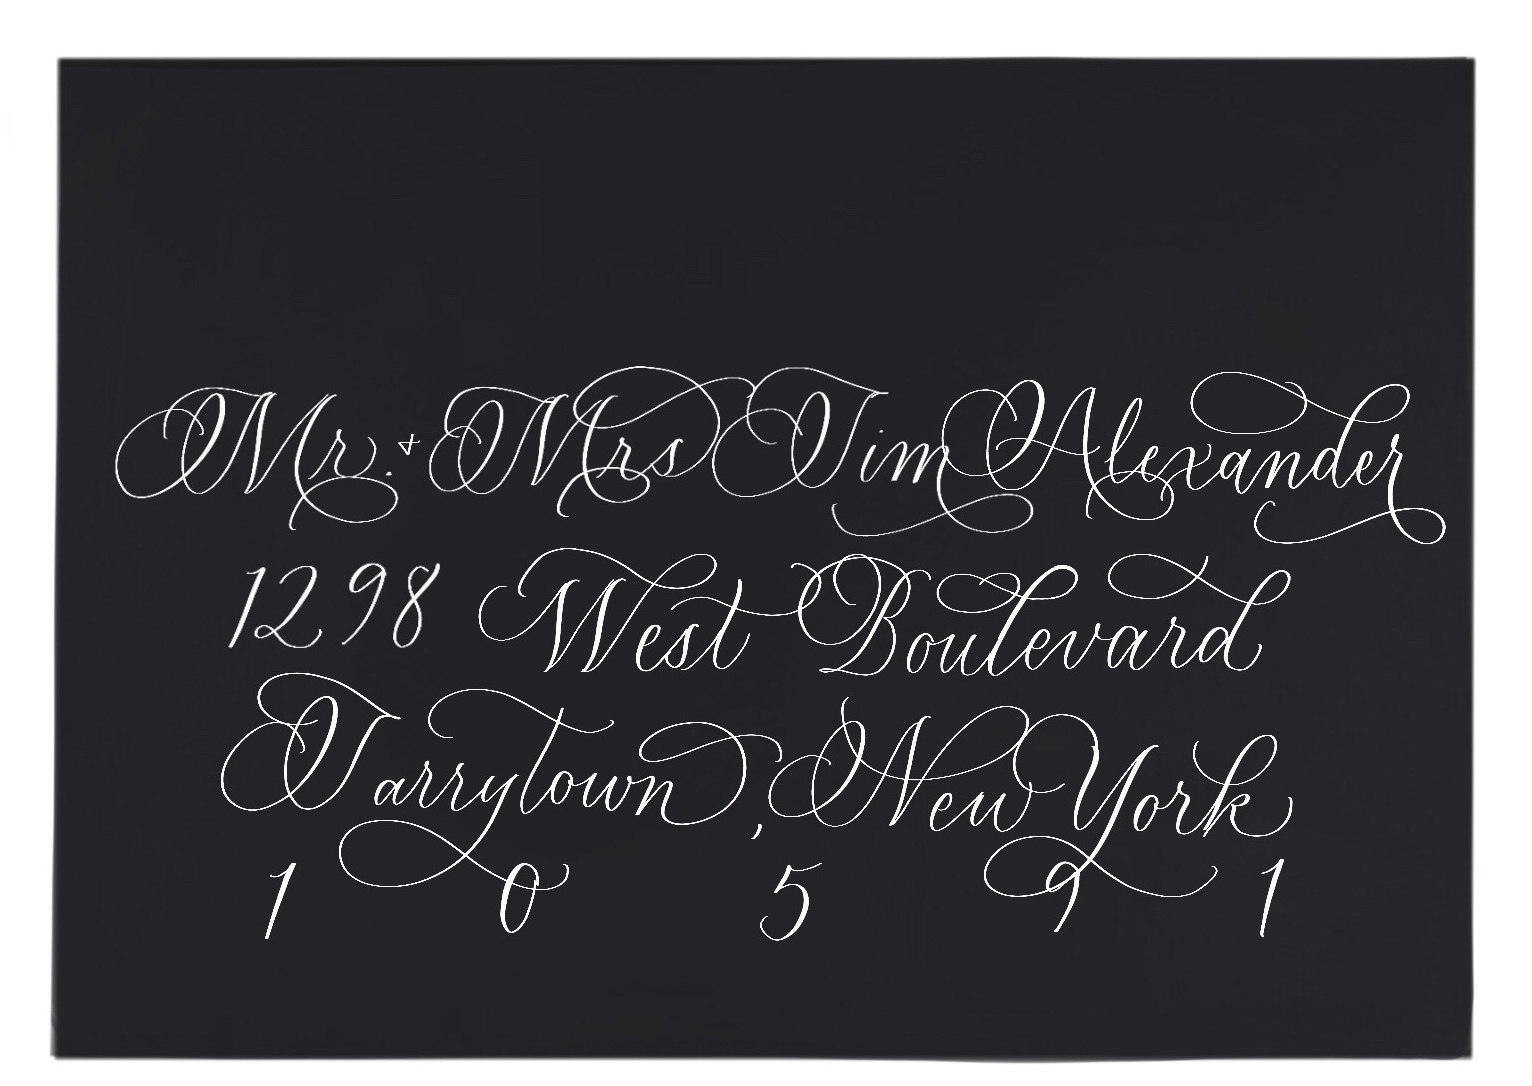 Mr. + Mrs Tim Alexander
1298 West Boulevard
Tarrytown, New York
1 0 5 9 1